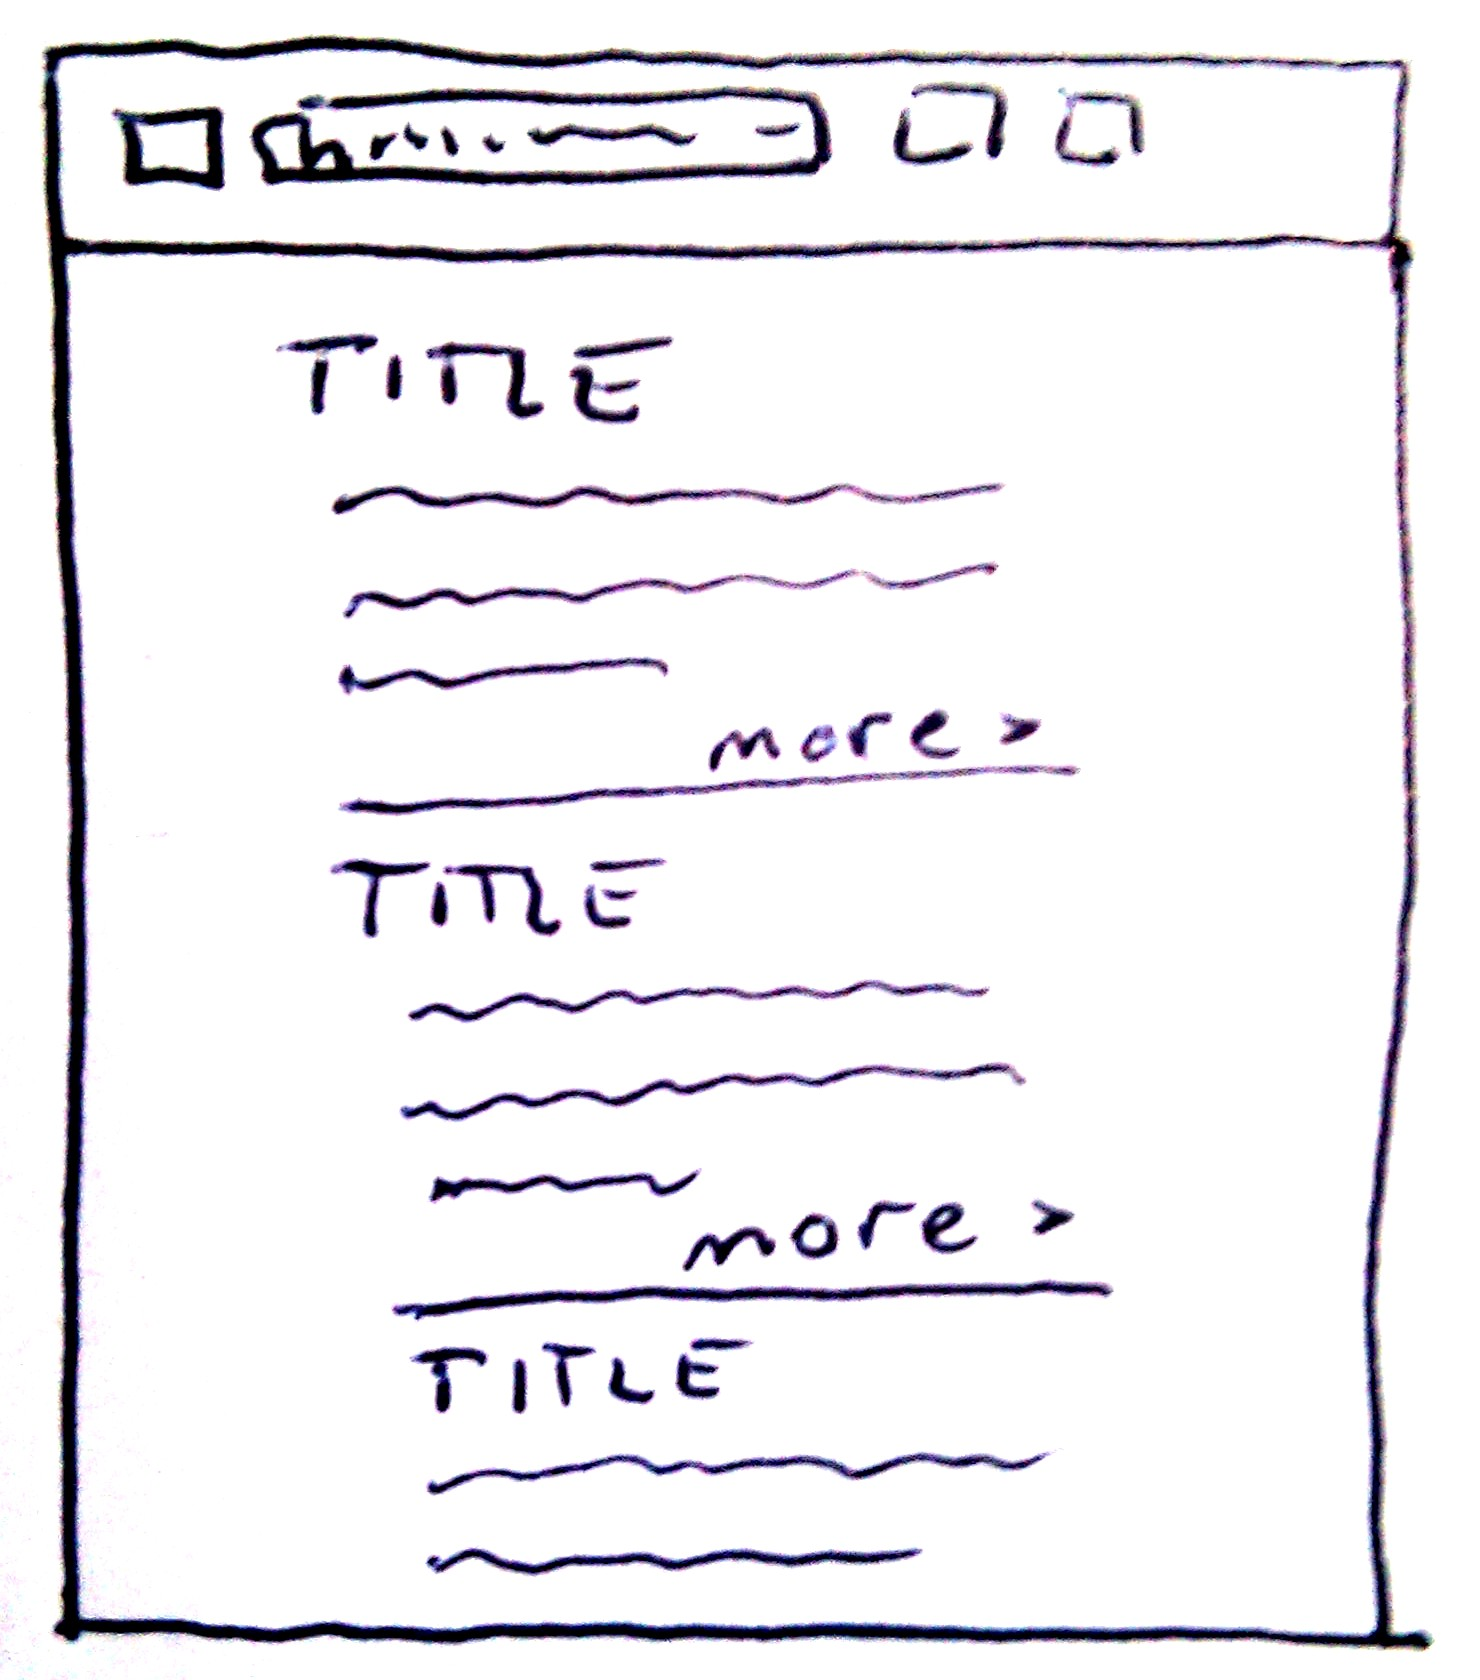 TITLE
more >
TITLE
more >
TITLE